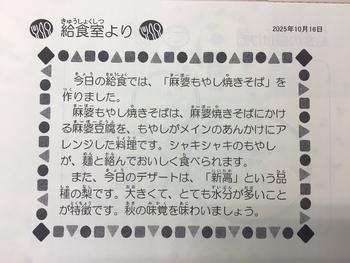 給食室より
2025年10月16日
今日の給食では、「麻婆もやし焼きそば」を
作りました。
麻婆もやし焼きそばは、麻婆焼きそばにかけ
る麻婆豆腐を、もやしがメインのあんかけにア
レンジした料理です。シャキシャキのもやし
が、麺と絡んでおいしく食べられます。
また、今日のデザートは、「新高」という品
種の梨です。大きくて、とても水分が多いこと
が特徴です。秋の味覚を味わいましょう。